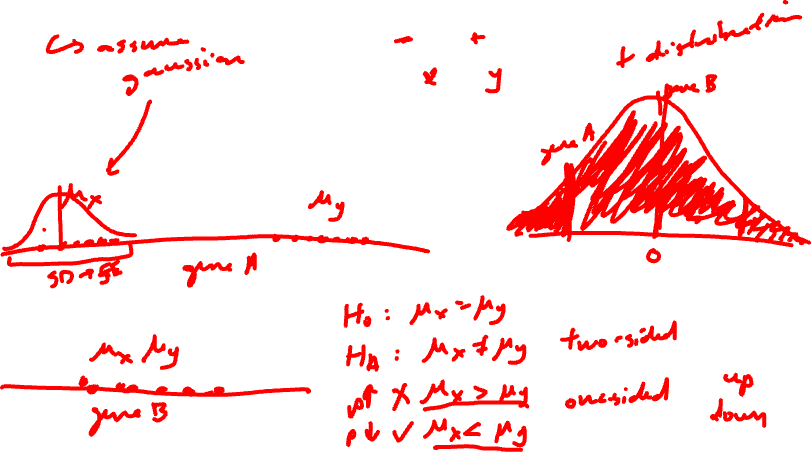 ↳ assume
gaussian
- +
x y
t distribution
gene B
gene A
0
μx
μy
SD → SE
gene A
μx μy
gene B
H0 : μx = μy
HA : μx ≠ μy two-sided
p↑ X μx > μy one sided up
p↓ ✓ μx < μy down